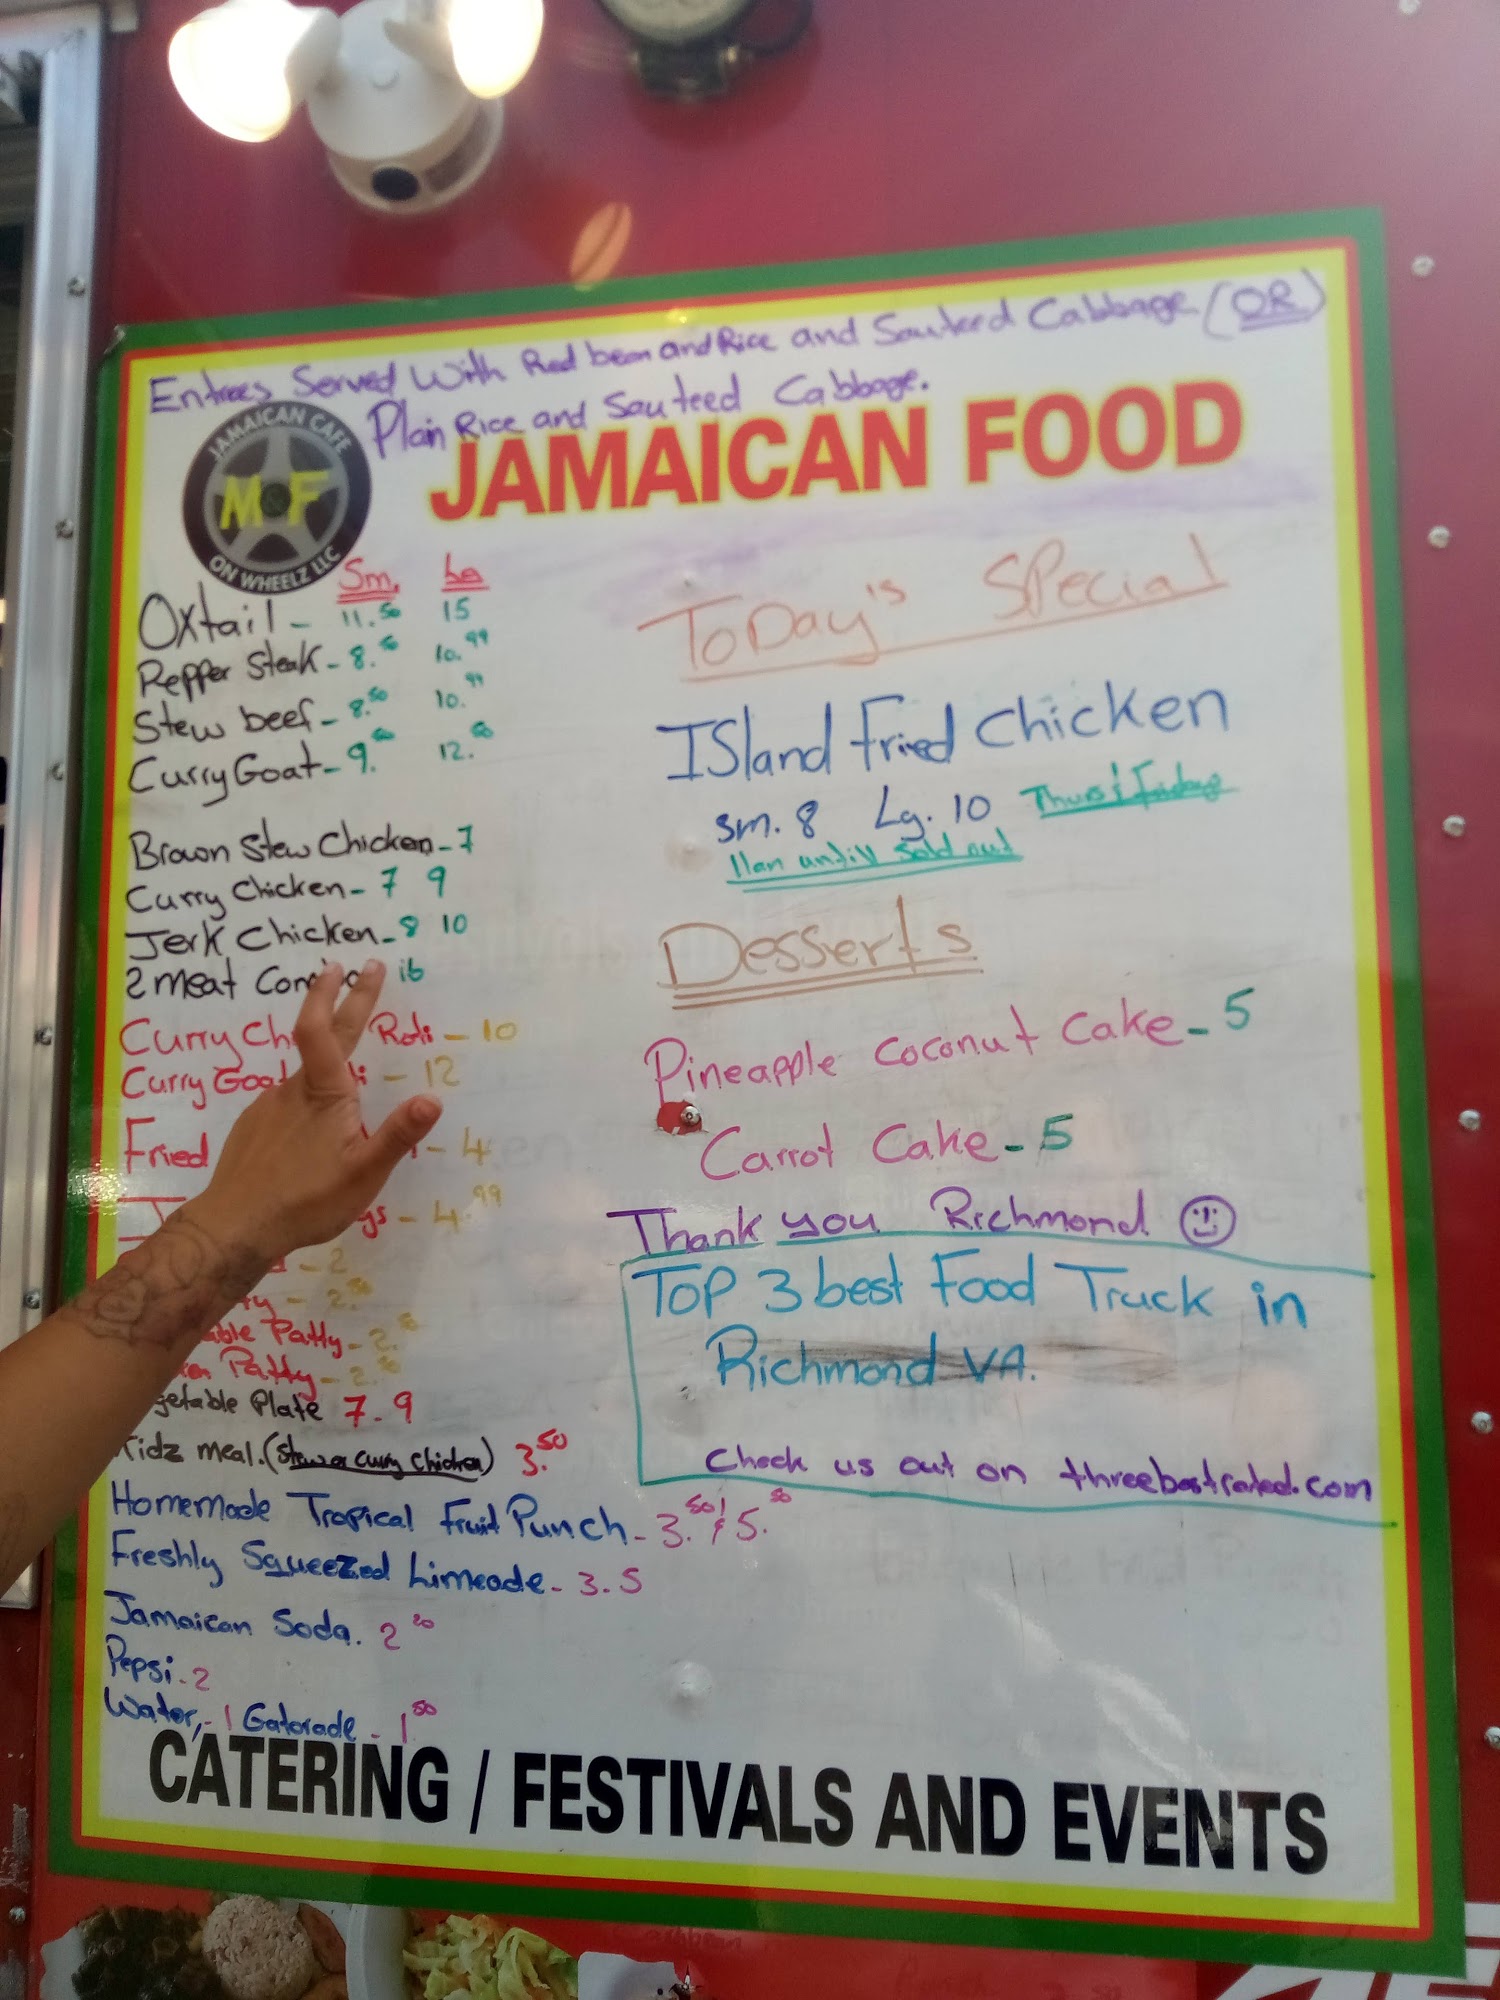 Entrees Served With Red bean and Rice and Sauteed Cabbage (OR)
Plain Rice and Sauteed Cabbage.
JAMAICAN CAFE
M&F
ON WHEELZ LLC
JAMAICAN FOOD
Sm. La
Oxtail - 11.50 15
Pepper Steak - 8.50 10.99
Stew beef - 8.50 10.99
Curry Goat - 9.50 12.50
Brown Stew Chicken - 7
Curry Chicken - 7 9
Jerk Chicken - 8 10
2 meat 16
Curry Roti - 10
Curry - 12
Fried - 4
- 4.99
- 2
- 2.50
Patty - 2.50
Patty - 2.50
Plate 7 - 9
Kidz meal. (Stew or Curry Chicken) 3.50
Homemade Tropical Fruit Punch - 3.50 & 5.50
Freshly Squeezed Limeade - 3.5
Jamaican Soda. 2
Pepsi - 2
Water, - 1 Gatorade - 1.50
Today's Special
ISland Fried Chicken
Sm. 8 Lg. 10 Thurs & Friday
11am untill Sold out
Desserts
Pineapple Coconut Cake - 5
Carrot Cake - 5
Thank you Richmond
TOP 3 best Food Truck in
Richmond VA.
Check us out on threebestrated.com
CATERING / FESTIVALS AND EVENTS